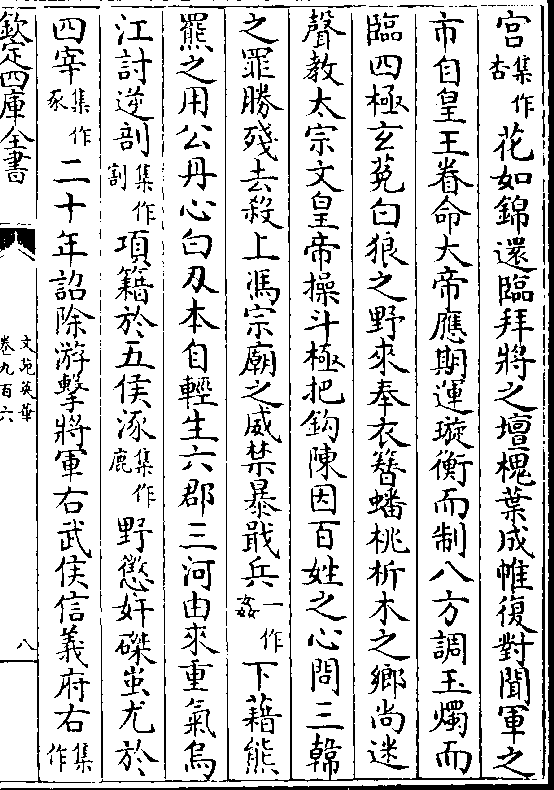 宫集作杏花如錦還臨拜將之壇槐葉成帷復對聞軍之
市自皇王眷命大帝應期運璇衡而制八方調玉燭而
臨四極玄菟白狼之野來奉衣簪蟠桃析木之鄉尚迷
聲教太宗文皇帝操斗極把鈎陳因百姓之心問三韓
之罪勝殘去殺上馮宗廟之威禁暴戢兵一作姦下藉熊
羆之用公丹心白刄本自輕生六郡三河由來重氣烏
江討逆剖集作割項籍於五侯涿集作鹿野懲奸磔蚩尤於
四宰集作冢二十年詔除游擊將軍右武侯信義府右集作
欽定四庫全書
文苑英華
卷九百六
八